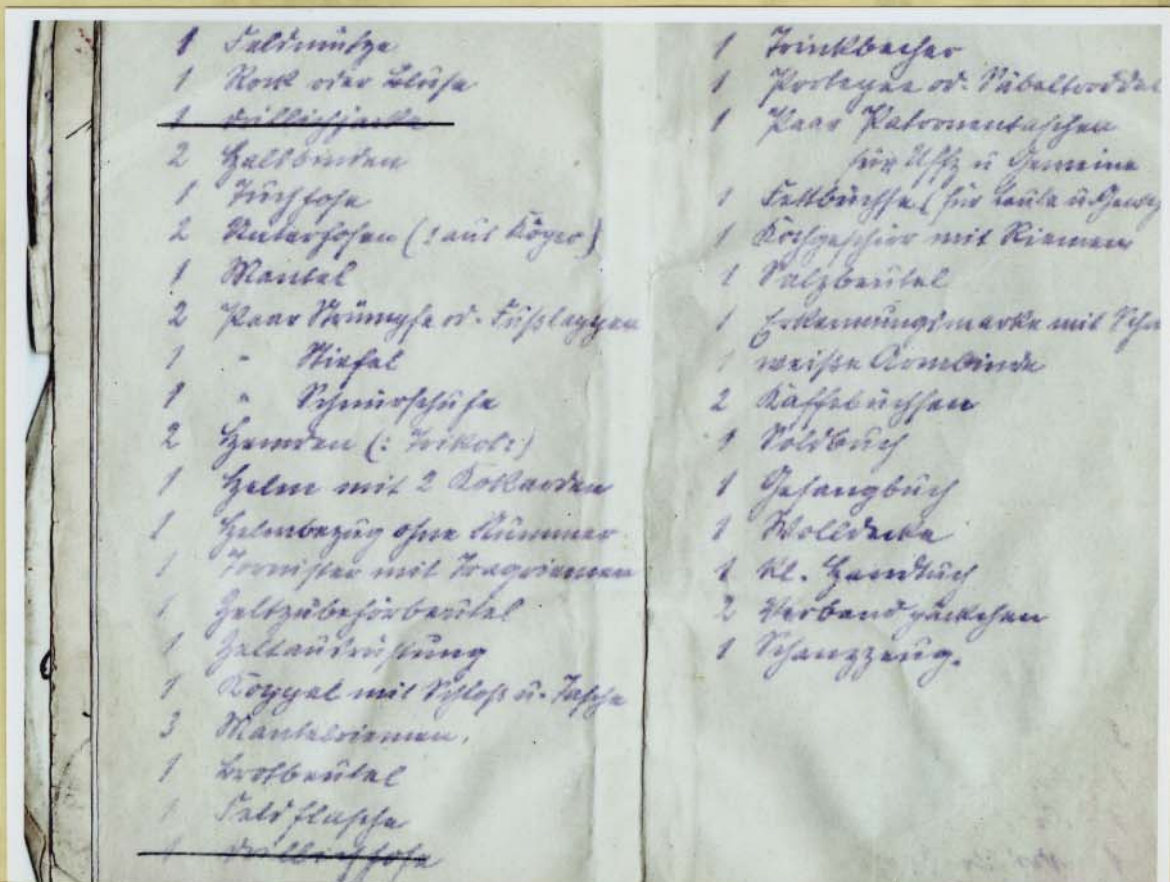 1 Feldmütze
1 Rock oder Bluse
1 Drillichjacke
2 Halsbinden
1 Tuchhose
2 Unterhosen (: aus Köper)
1 Mantel
2 Paar Strümpfe od. Fußlappen
1 " Stiefel
1 " Schnürschuhe
2 Hemden (: Trikot:)
1 Helm mit 2 Kokarden
1 Helmbezug ohne Nummer
1 Tornister mit Tragriemen
1 Zeltzubehörbeutel
1 Zeltausrüstung
1 Koppel mit Schloß u. Tasche
3 Mantelriemen.
1 Brotbeutel
1 Feldflasche
1 Drillichhose
1 Trinkbecher
1 Portepee od. Säbeltroddel
1 Paar Patronentaschen
für Uffz u Gemeine
1 Fettbüchse (für Leute u.
1 Kochgeschirr mit Riemen
1 Salzbeutel
1 Erkennungsmarke mit Schn
1 weiße Armbinde
2 Kaffebüchsen
1 Soldbuch
1 Gesangbuch
1 Wolldecke
1 kl. Handtuch
2 Verbandpäckchen
1 Schanzzeug.